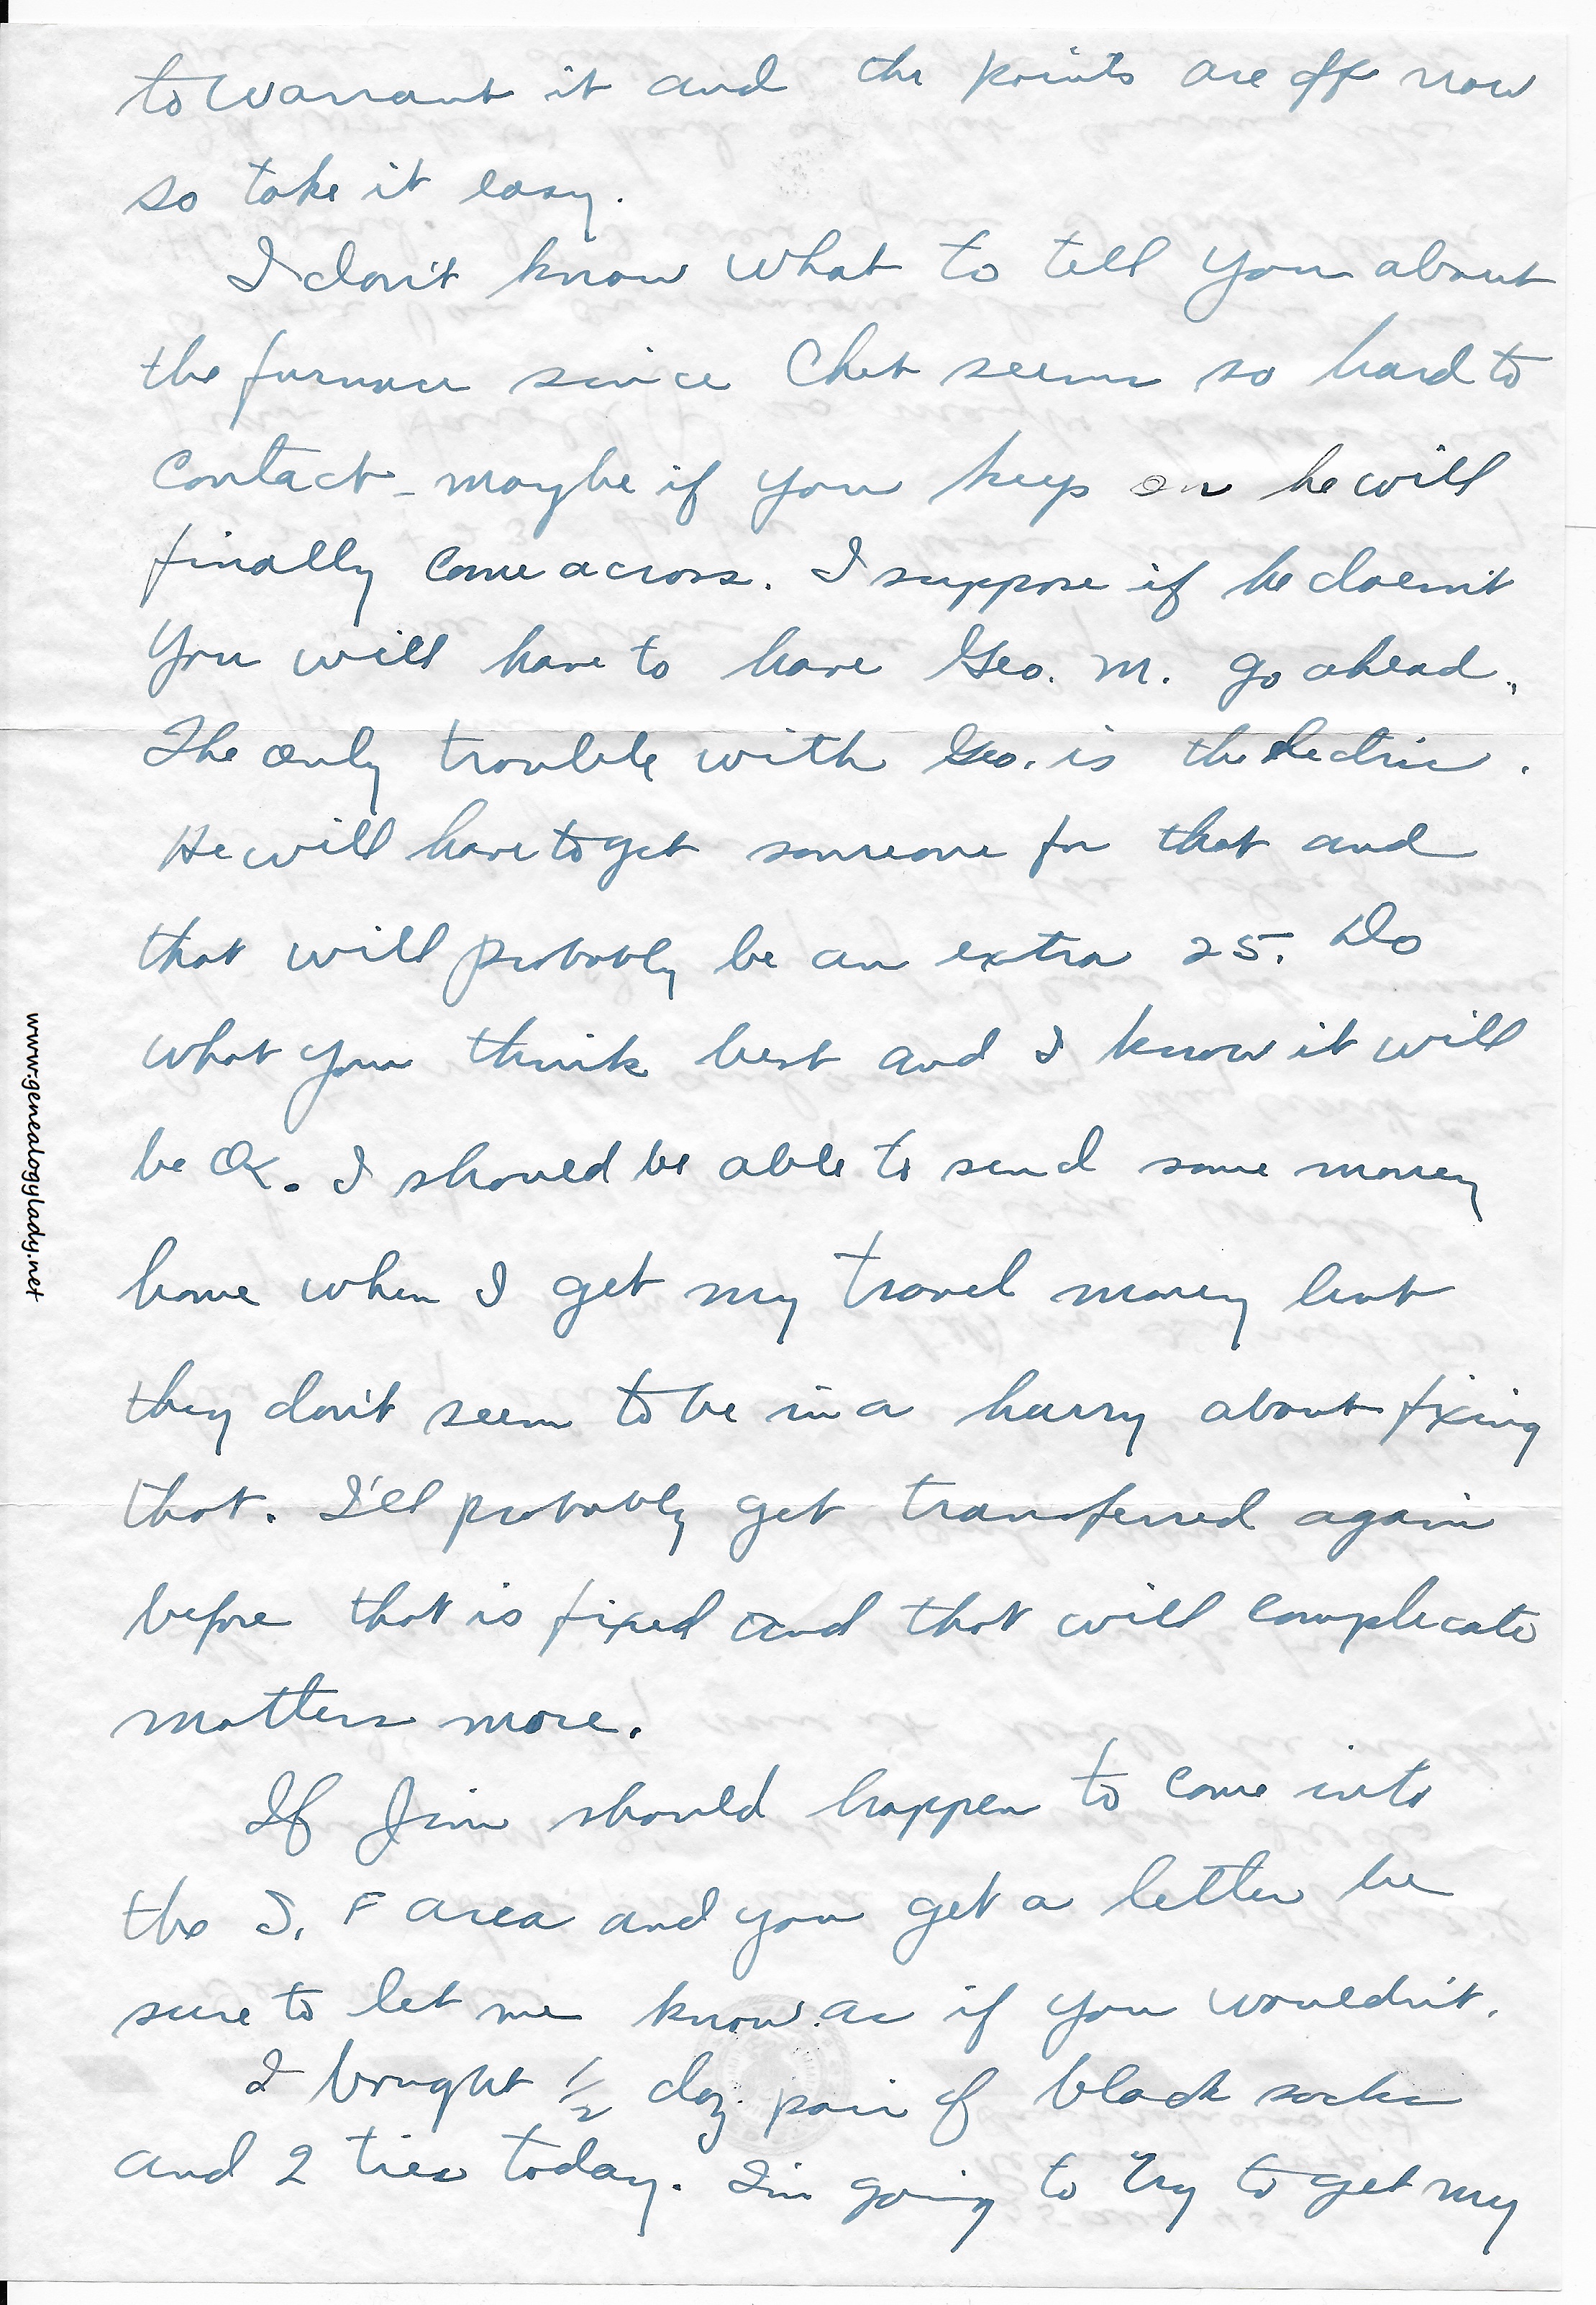 to warrant it and the points are off now
so take it easy.
I don't know what to tell you about
the furnace since Chet seems so hard to
contact - maybe if you keep on he will
finally come across. I suppose if he doesn't
you will have to have Geo. M. go ahead.
The only trouble with Geo. is the electric.
He will have to get someone for that and
that will probably be an extra 25. Do
what you think best and I know it will
be OK. I should be able to send some money
home when I get my travel money but
they don't seem to be in a hurry about fixing
that. I'll probably get transferred again
before that is fixed and that will complicate
matters more.
If Jim should happen to come into
the S. F area and you get a letter be
sure to let me know. as if you wouldn't.
I bought 1/2 doz. pair of black socks
and 2 ties today. I'm going to try to get my
www.genealogylady.net